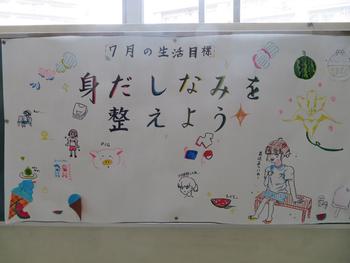 7月の生活目標
身だしなみを
整えよう
PIG